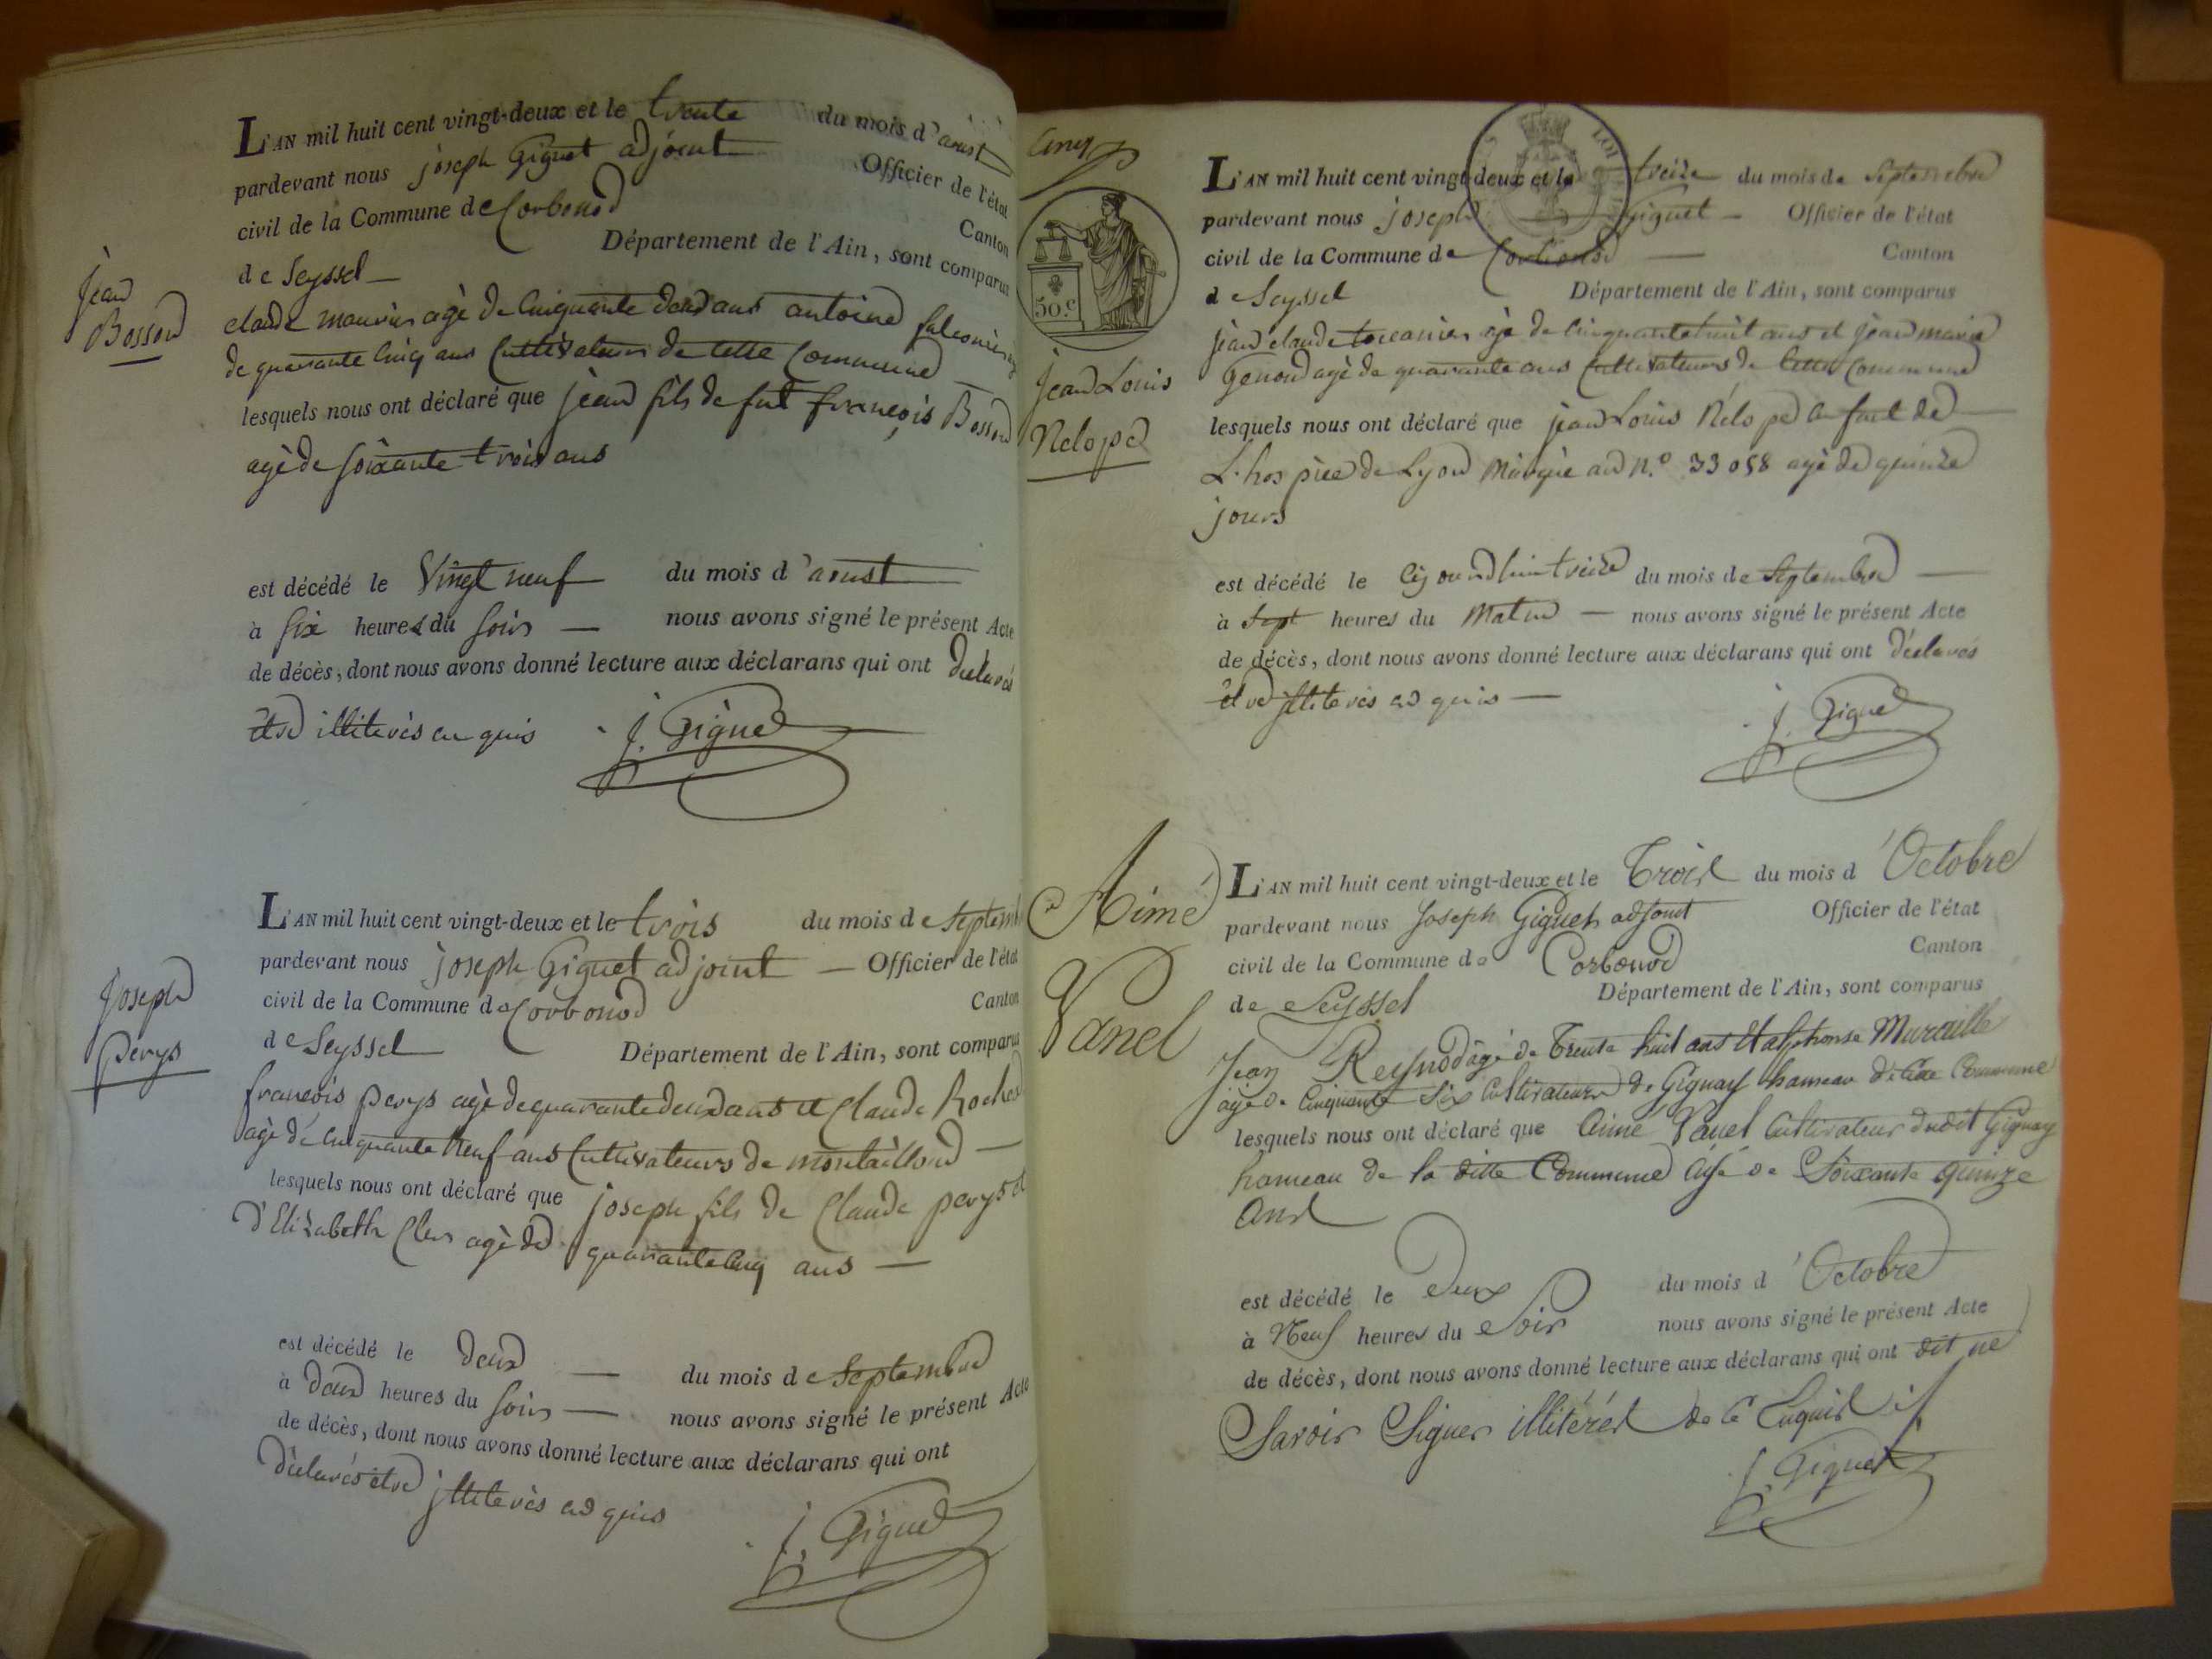 Jean
Bossond
L'AN mil huit cent vingt-deux et le trente du mois d'aoust
pardevant nous joseph Giguet adjoint Officier de l'état
civil de la Commune de Corbonod Canton
de Seyssel — Département de l'Ain, sont comparus
claude mourier agè de Cinquante deux ans antoine falconier
de quarante Cinq ans Cultivateurs de cette Commune —
lesquels nous ont déclaré que jean fils de fut françois Bossond
agè de soixante trois ans
est décédé le Vingt neuf du mois d'aoust
à six heures du soir — nous avons signé le présent Acte
de décès, dont nous avons donné lecture aux déclarans qui ont déclarés
être illiterès en quis j. Giguet
Joseph
perys
L'AN mil huit cent vingt-deux et le trois du mois de septemb
pardevant nous joseph Giguet adjoint — Officier de l'état
civil de la Commune de Corbonod Canton
de Seyssel Département de l'Ain, sont comparus
françois perys agè de quarante deux ans et Claude Rochex
agè de Cinquante Neuf ans Cultivateurs de montaillond —
lesquels nous ont déclaré que joseph fils de Claude perys et
d'Elizabeth Clerc agè de quarante Cinq ans —
est décédé le deux — du mois de Septembre
à deux heures du soir — nous avons signé le présent Acte
de décès, dont nous avons donné lecture aux déclarans qui ont
déclarés être illiterès en quis
j. Giguet
50.c
Jean Louis
Nelope
L'AN mil huit cent vingt-deux et le treize du mois de septembre
pardevant nous joseph Giguet — Officier de l'état
civil de la Commune de Corbonod — Canton
de Seyssel Département de l'Ain, sont comparus
jean claude toccanier agè de Cinquante huit ans et jean marie
Genond agè de quarante ans Cultivateurs de Cette Commune
lesquels nous ont déclaré que jean Louis Nélope Enfant de
L'hospice de Lyon Marqué au N.º 33058 agè de quinze
jours
est décédé le aujourdhuin treize du mois de Septembre —
à sept heures du Matin — nous avons signé le présent Acte
de décès, dont nous avons donné lecture aux déclarans qui ont déclarés
être illiterès en quis —
j. Giguet
Aimé
Vanel
L'AN mil huit cent vingt-deux et le Trois du mois d'Octobre
pardevant nous Joseph Giguet adjoint Officier de l'état
civil de la Commune de Corbonod Canton
de Seyssel Département de l'Ain, sont comparus
Jean Reynod âgé de Trente huit ans et alphonse Muraille
âgé de Cinquante Six Cultivateurs de Gignay hameau de Commune
lesquels nous ont déclaré que Aimé Vanel Cultivateur dudit Gignay
hameau de la ditte Commune âgé de Soixante quinze
Ans
est décédé le Deux du mois d'Octobre
à Neuf heures du Soir nous avons signé le présent Acte
de décès, dont nous avons donné lecture aux déclarans qui ont dit ne
Savoir Signer illitérés de ce Enquis
J. Giguet